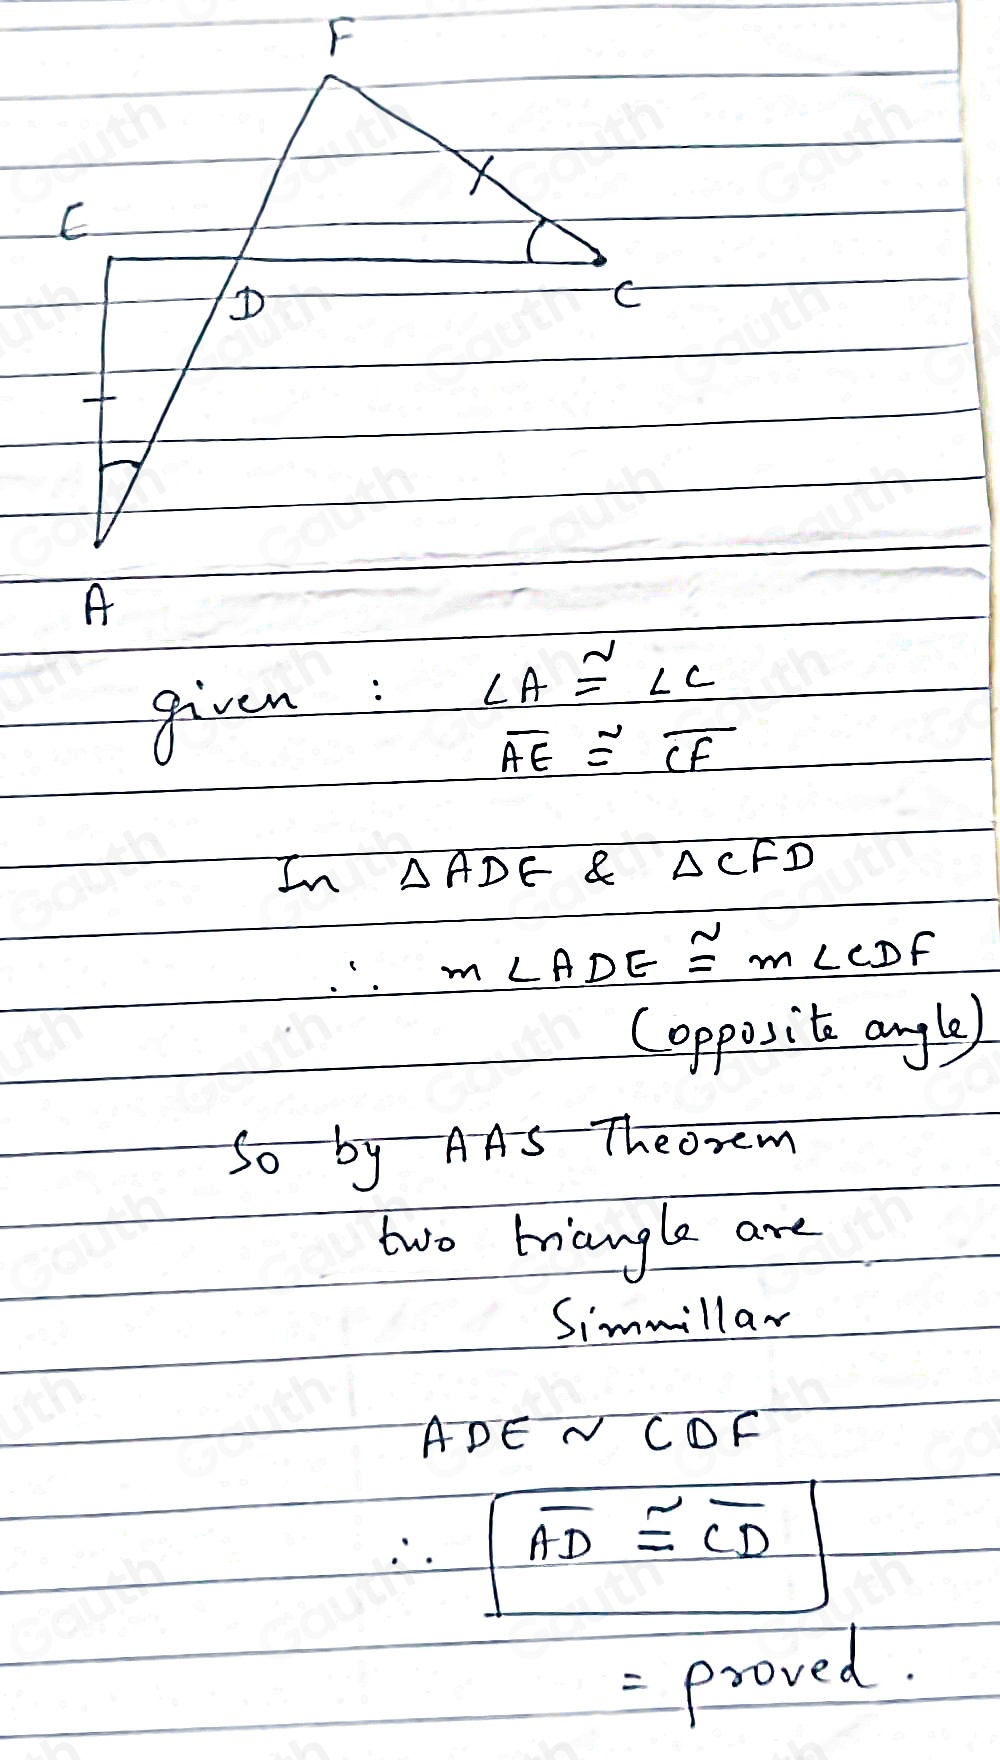 F
E
D
C
A
given : ∠A ≅ ∠C
AE ≅ CF
In △ADE & △CFD
∴ m∠ADE ≅ m∠CDF
(opposite angle)
So by AAS Theorem
two triangle are
Simmillar
ADE ~ CDF
∴ AD ≅ CD
= proved.